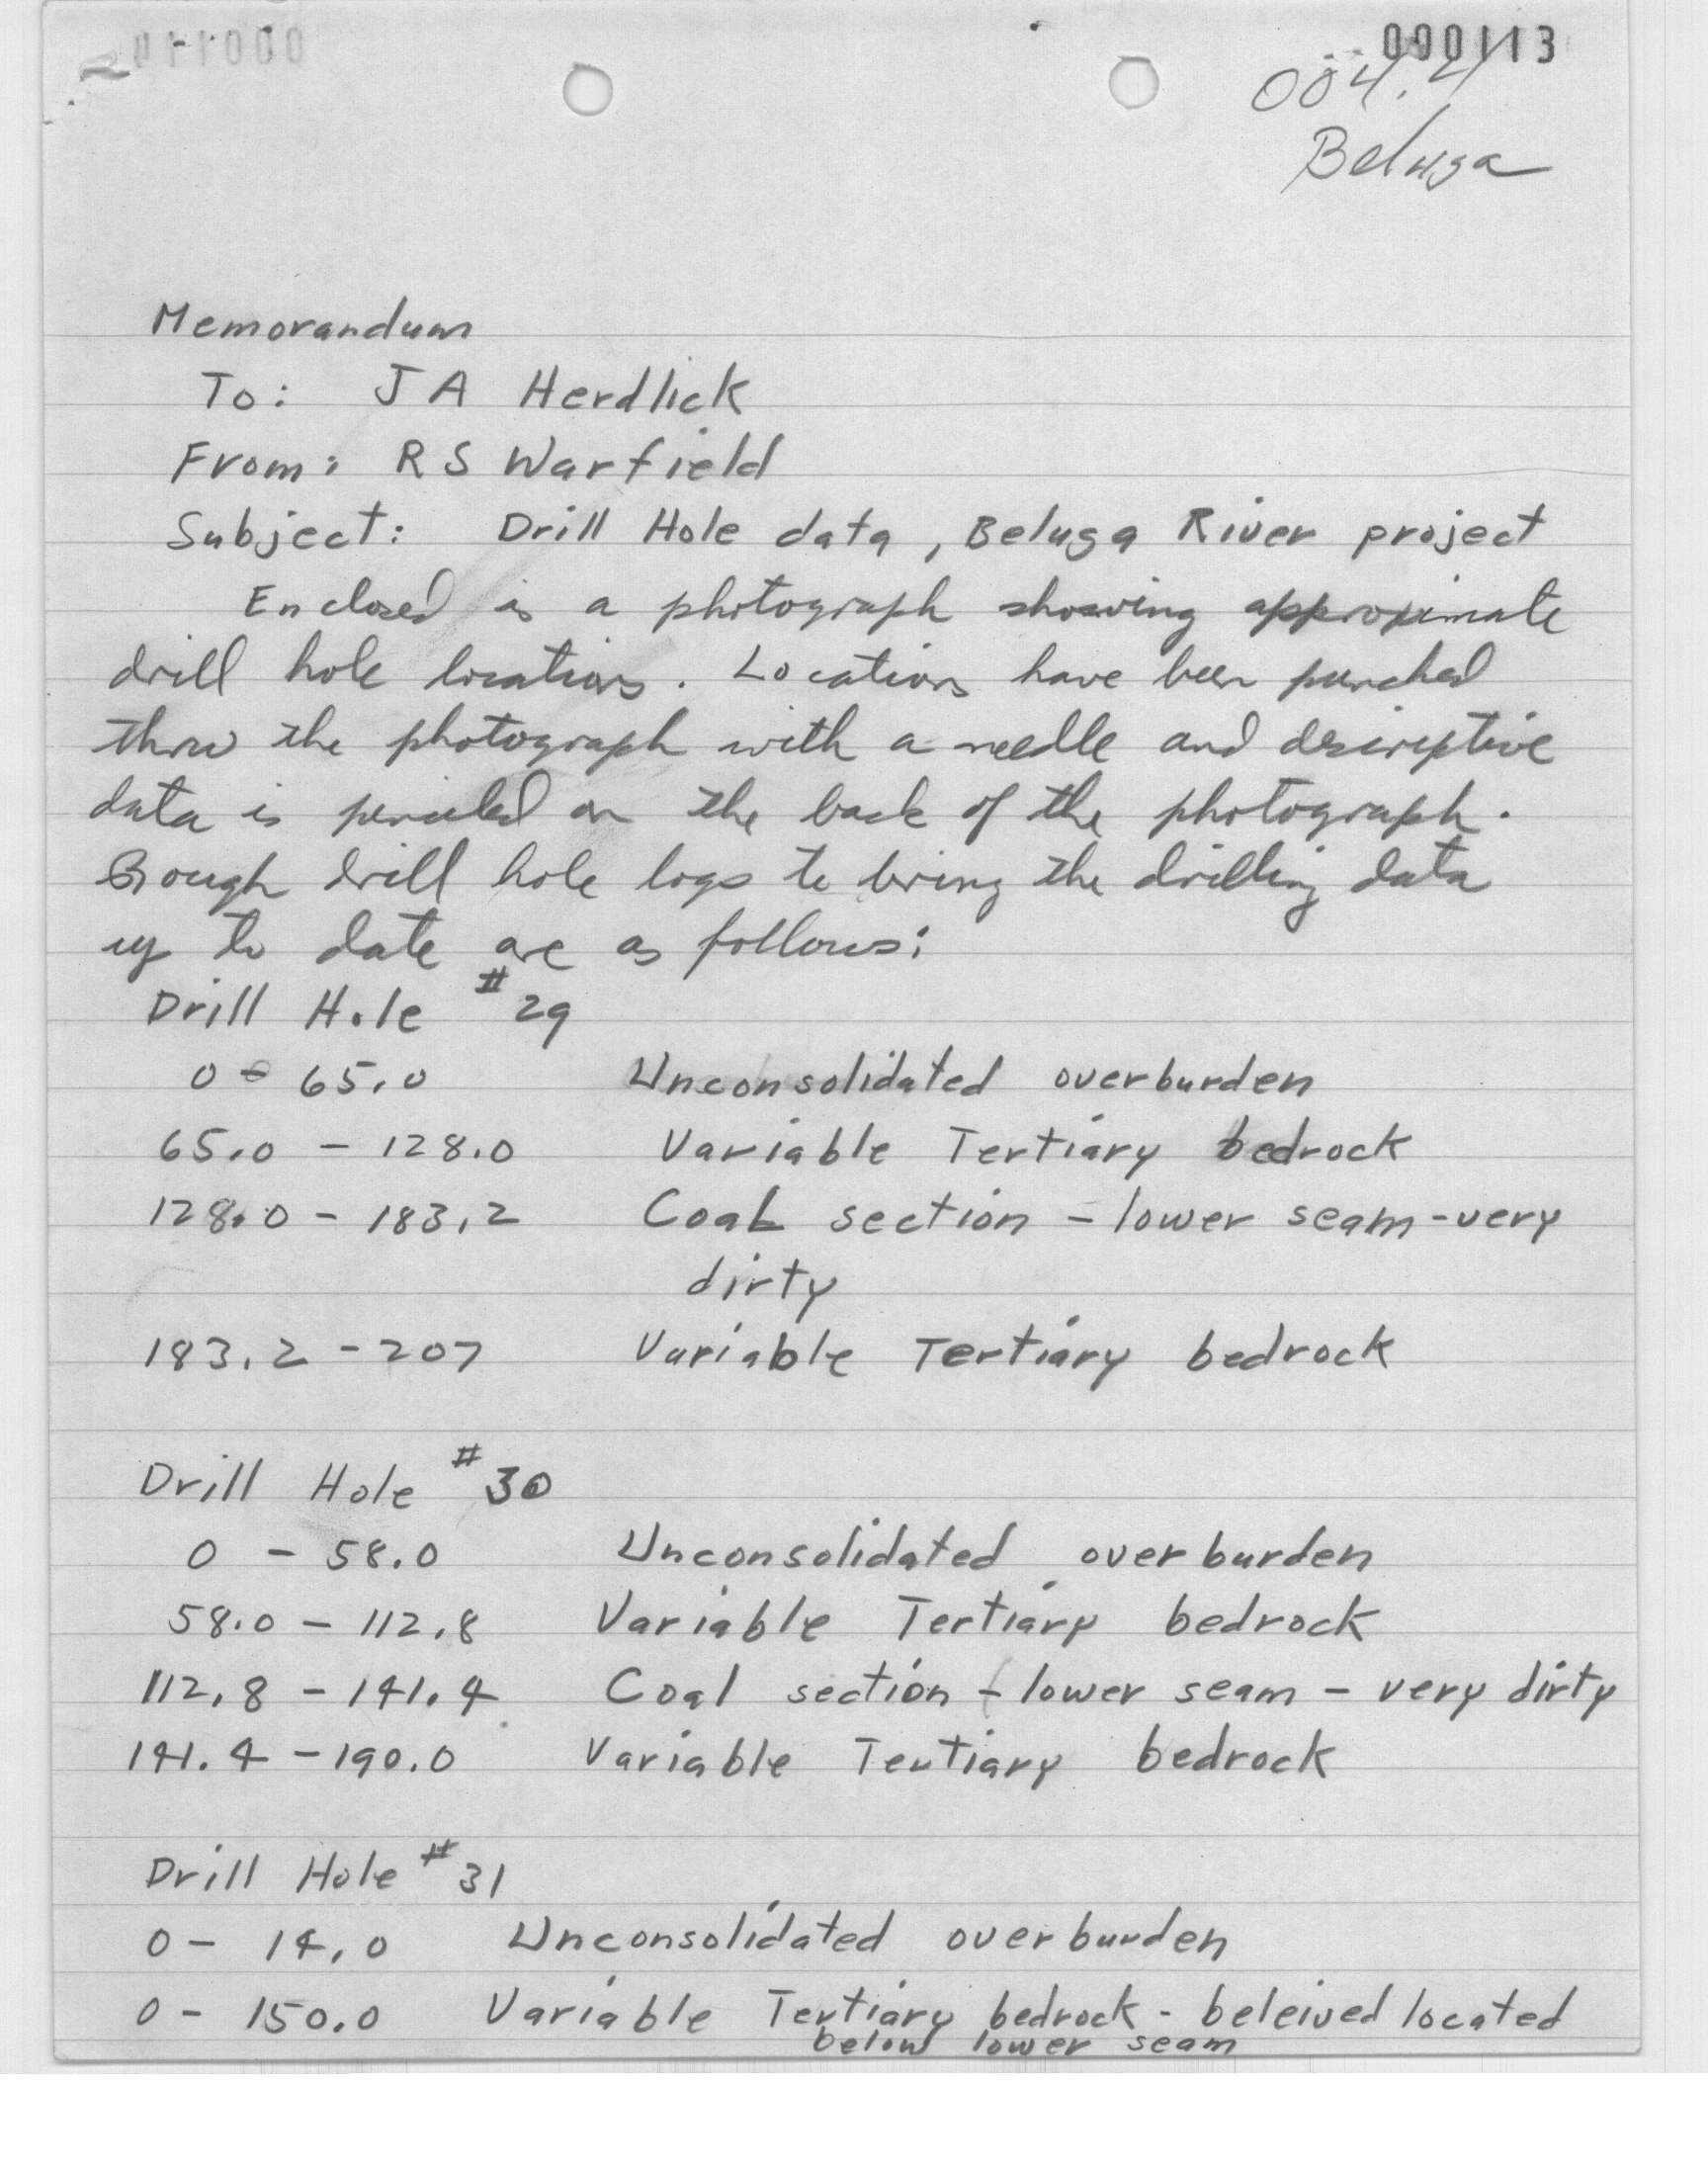 000113
004.4
Beluga
Memorandum
To: J A Herdlick
From: R S Warfield
Subject: Drill Hole data, Beluga River project
Enclosed is a photograph showing approximate
drill hole locations. Locations have been punched
thru the photograph with a needle and descriptive
data is penciled on the back of the photograph.
Rough drill hole logs to bring the drilling data
up to date are as follows:
Drill Hole #29
0 - 65.0 Unconsolidated overburden
65.0 - 128.0 Variable Tertiary bedrock
128.0 - 183.2 Coal section - lower seam - very
dirty
183.2 - 207 Variable Tertiary bedrock
Drill Hole #30
0 - 58.0 Unconsolidated overburden
58.0 - 112.8 Variable Tertiary bedrock
112.8 - 141.4 Coal section - lower seam - very dirty
141.4 - 190.0 Variable Tertiary bedrock
Drill Hole #31
0 - 14.0 Unconsolidated overburden
0 - 150.0 Variable Tertiary bedrock - beleived located
below lower seam